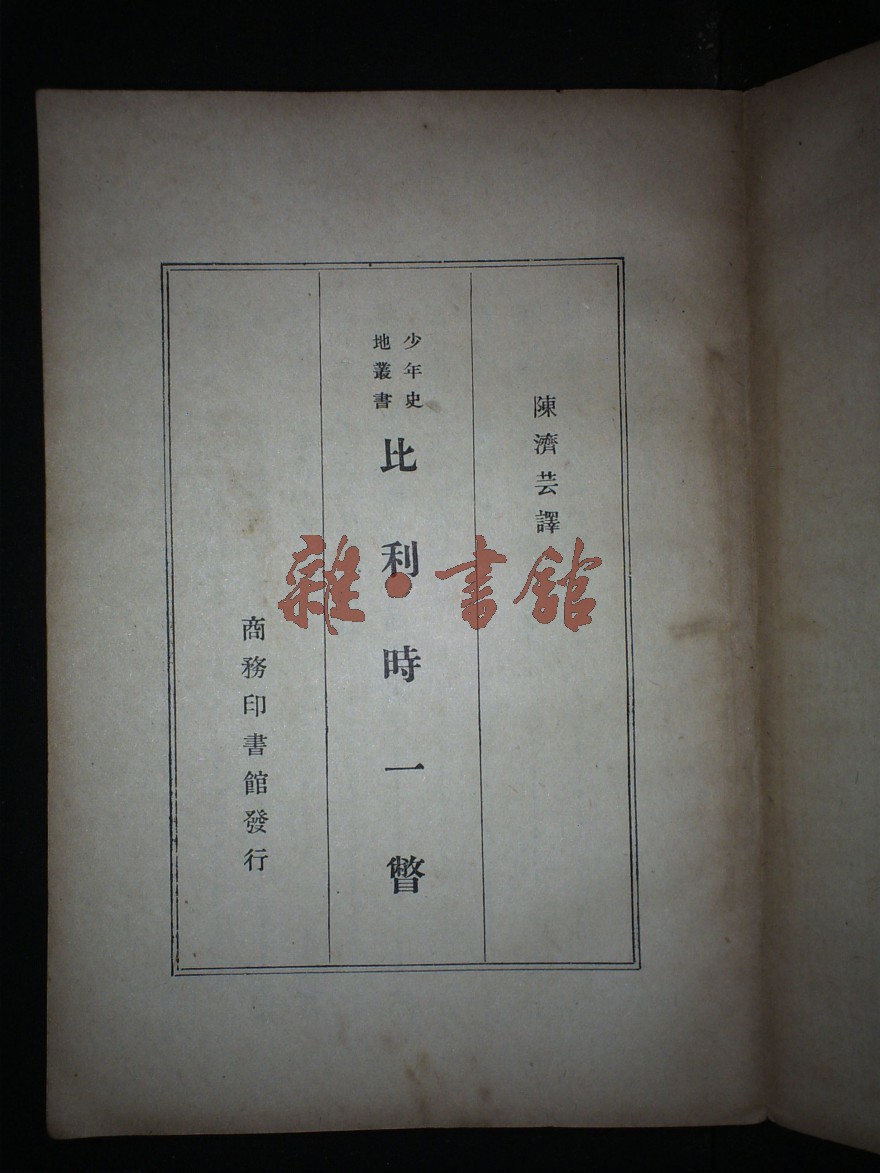 陳濟芸譯
少年史
地叢書
比利時一瞥
商務印書館發行
雜·書館